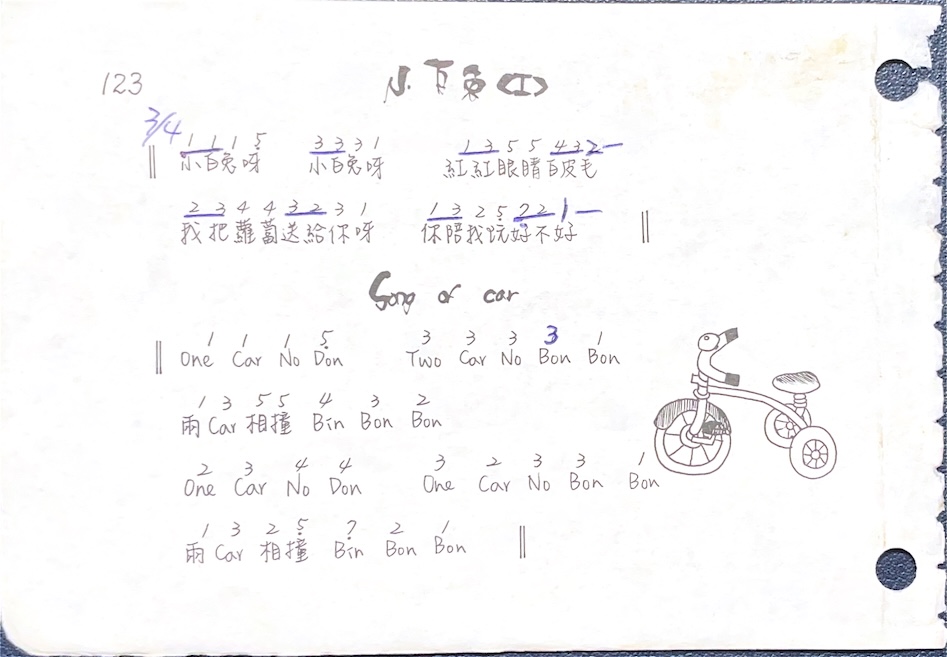 123
小百兔(I)
3/4
1 1 1 5 3 3 3 1 1 3 5 5 4 3 2 —
小白兔呀 小白兔呀 紅紅眼睛白皮毛
2 3 4 4 3 2 3 1 1 3 2 5 7 2 1 —
我把蘿蔔送給你呀 你陪我玩好不好
Song of car
1 1 1 5 3 3 3 3 1
One Car No Don Two Car No Bon Bon
1 3 5 5 4 3 2
兩 Car 相撞 Bin Bon Bon
2 3 4 4 3 2 3 3 1
One Car No Don One Car No Bon Bon
1 3 2 5 7 2 1
兩 Car 相撞 Bin Bon Bon